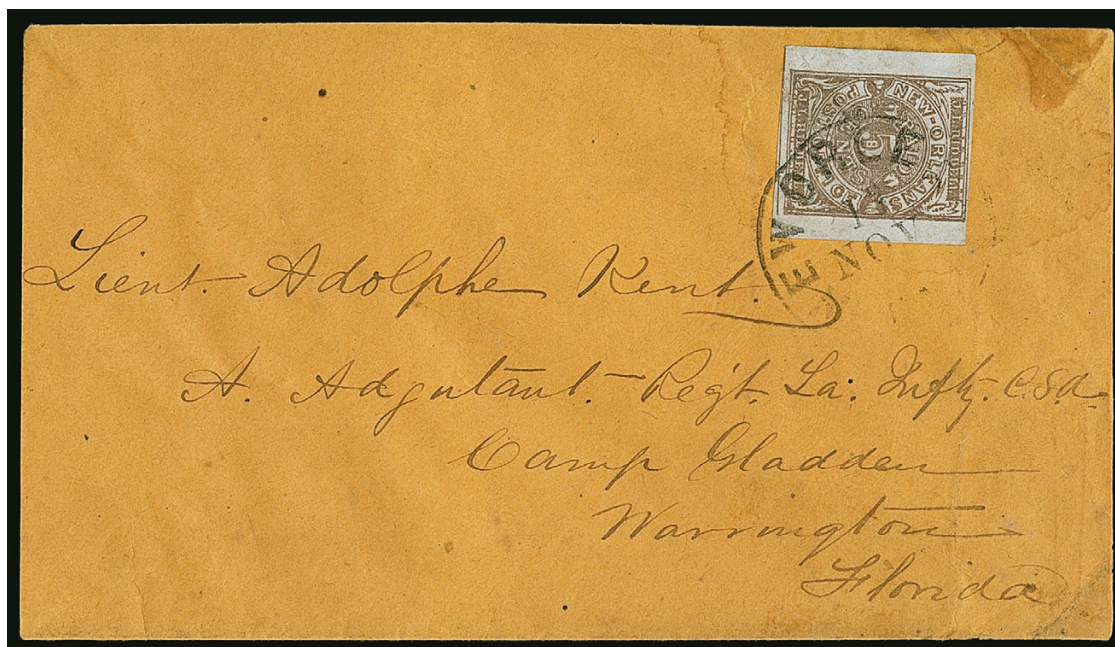 NEW-ORLEANS
POST OFFICE
J.L. RIDDELL
5
CENTS
PAID
NOV
Lieut. Adolphe Kent.
A. Adjutant. Regt. La: Infty. C.S.A.
Camp Gladden
Warrington
Florida